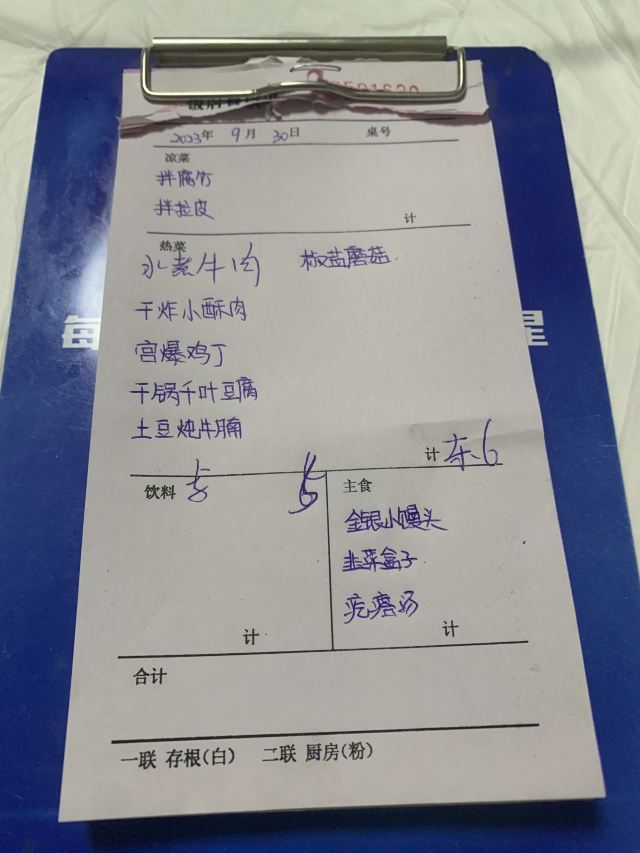 2023年 9月 30日 桌号
凉菜
拌腐竹
拌拉皮
计
热菜
水煮牛肉 椒盐蘑菇
干炸小酥肉
宫爆鸡丁
干锅千叶豆腐
土豆炖牛腩
计 东.6
饮料
主食
金银小馒头
韭菜盒子
疙瘩汤
计 计
合计
一联 存根(白) 二联 厨房(粉)
每
星